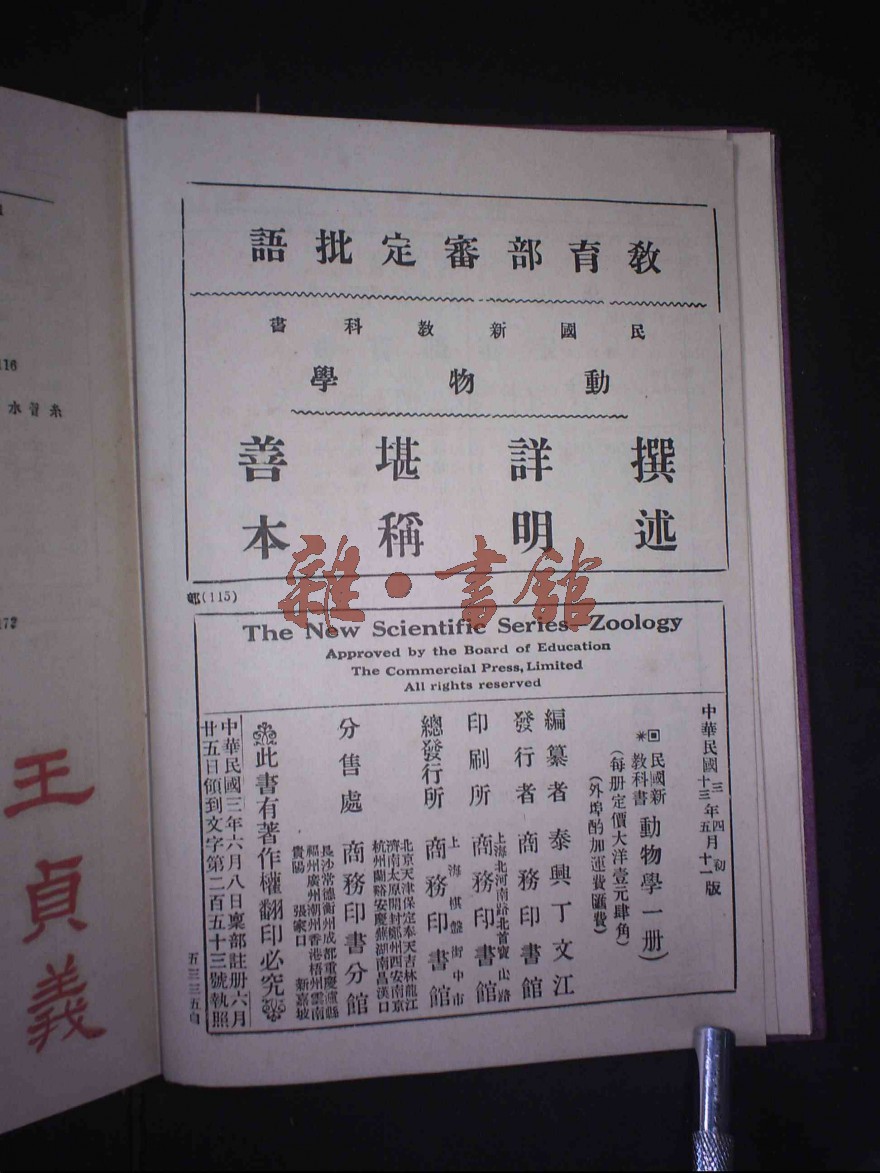 教育部審定批語
民國新教科書
動物學
撰述
詳明
堪稱
善本
(115)
雜·書館
The New Scientific Series—Zoology
Approved by the Board of Education
The Commercial Press, Limited
All rights reserved
中華民國三年四月初版
十三年五月十一版
民國新教科書 動物學一册
(每册定價大洋壹元肆角)
(外埠酌加運費滙費)
編纂者 泰興丁文江
發行者 商務印書館
上海北河南路北首寶山路
印刷所 商務印書館
上海棋盤街中市
總發行所 商務印書館
北京天津保定奉天吉林龍江
濟南太原開封鄭州西安南京
杭州蘭谿安慶蕪湖南昌漢口
分售處 商務印書分館
長沙常德衡州成都重慶瀘縣
福州廣州潮州香港梧州雲南
貴陽 張家口 新嘉坡
此書有著作權翻印必究
中華民國三年六月八日稟部註册六月
廿五日領到文字第二百五十三號執照
五三三五自
116
水管系
172
王貞義